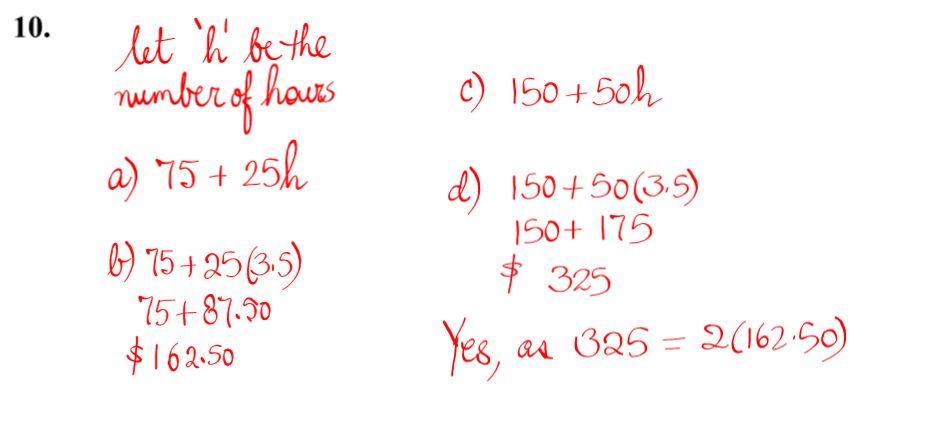 10.
let 'h' be the
number of hours
a) 75 + 25h
b) 75 + 25(3.5)
75 + 87.50
$162.50
c) 150 + 50h
d) 150 + 50(3.5)
150 + 175
$ 325
Yes, as 325 = 2(162.50)